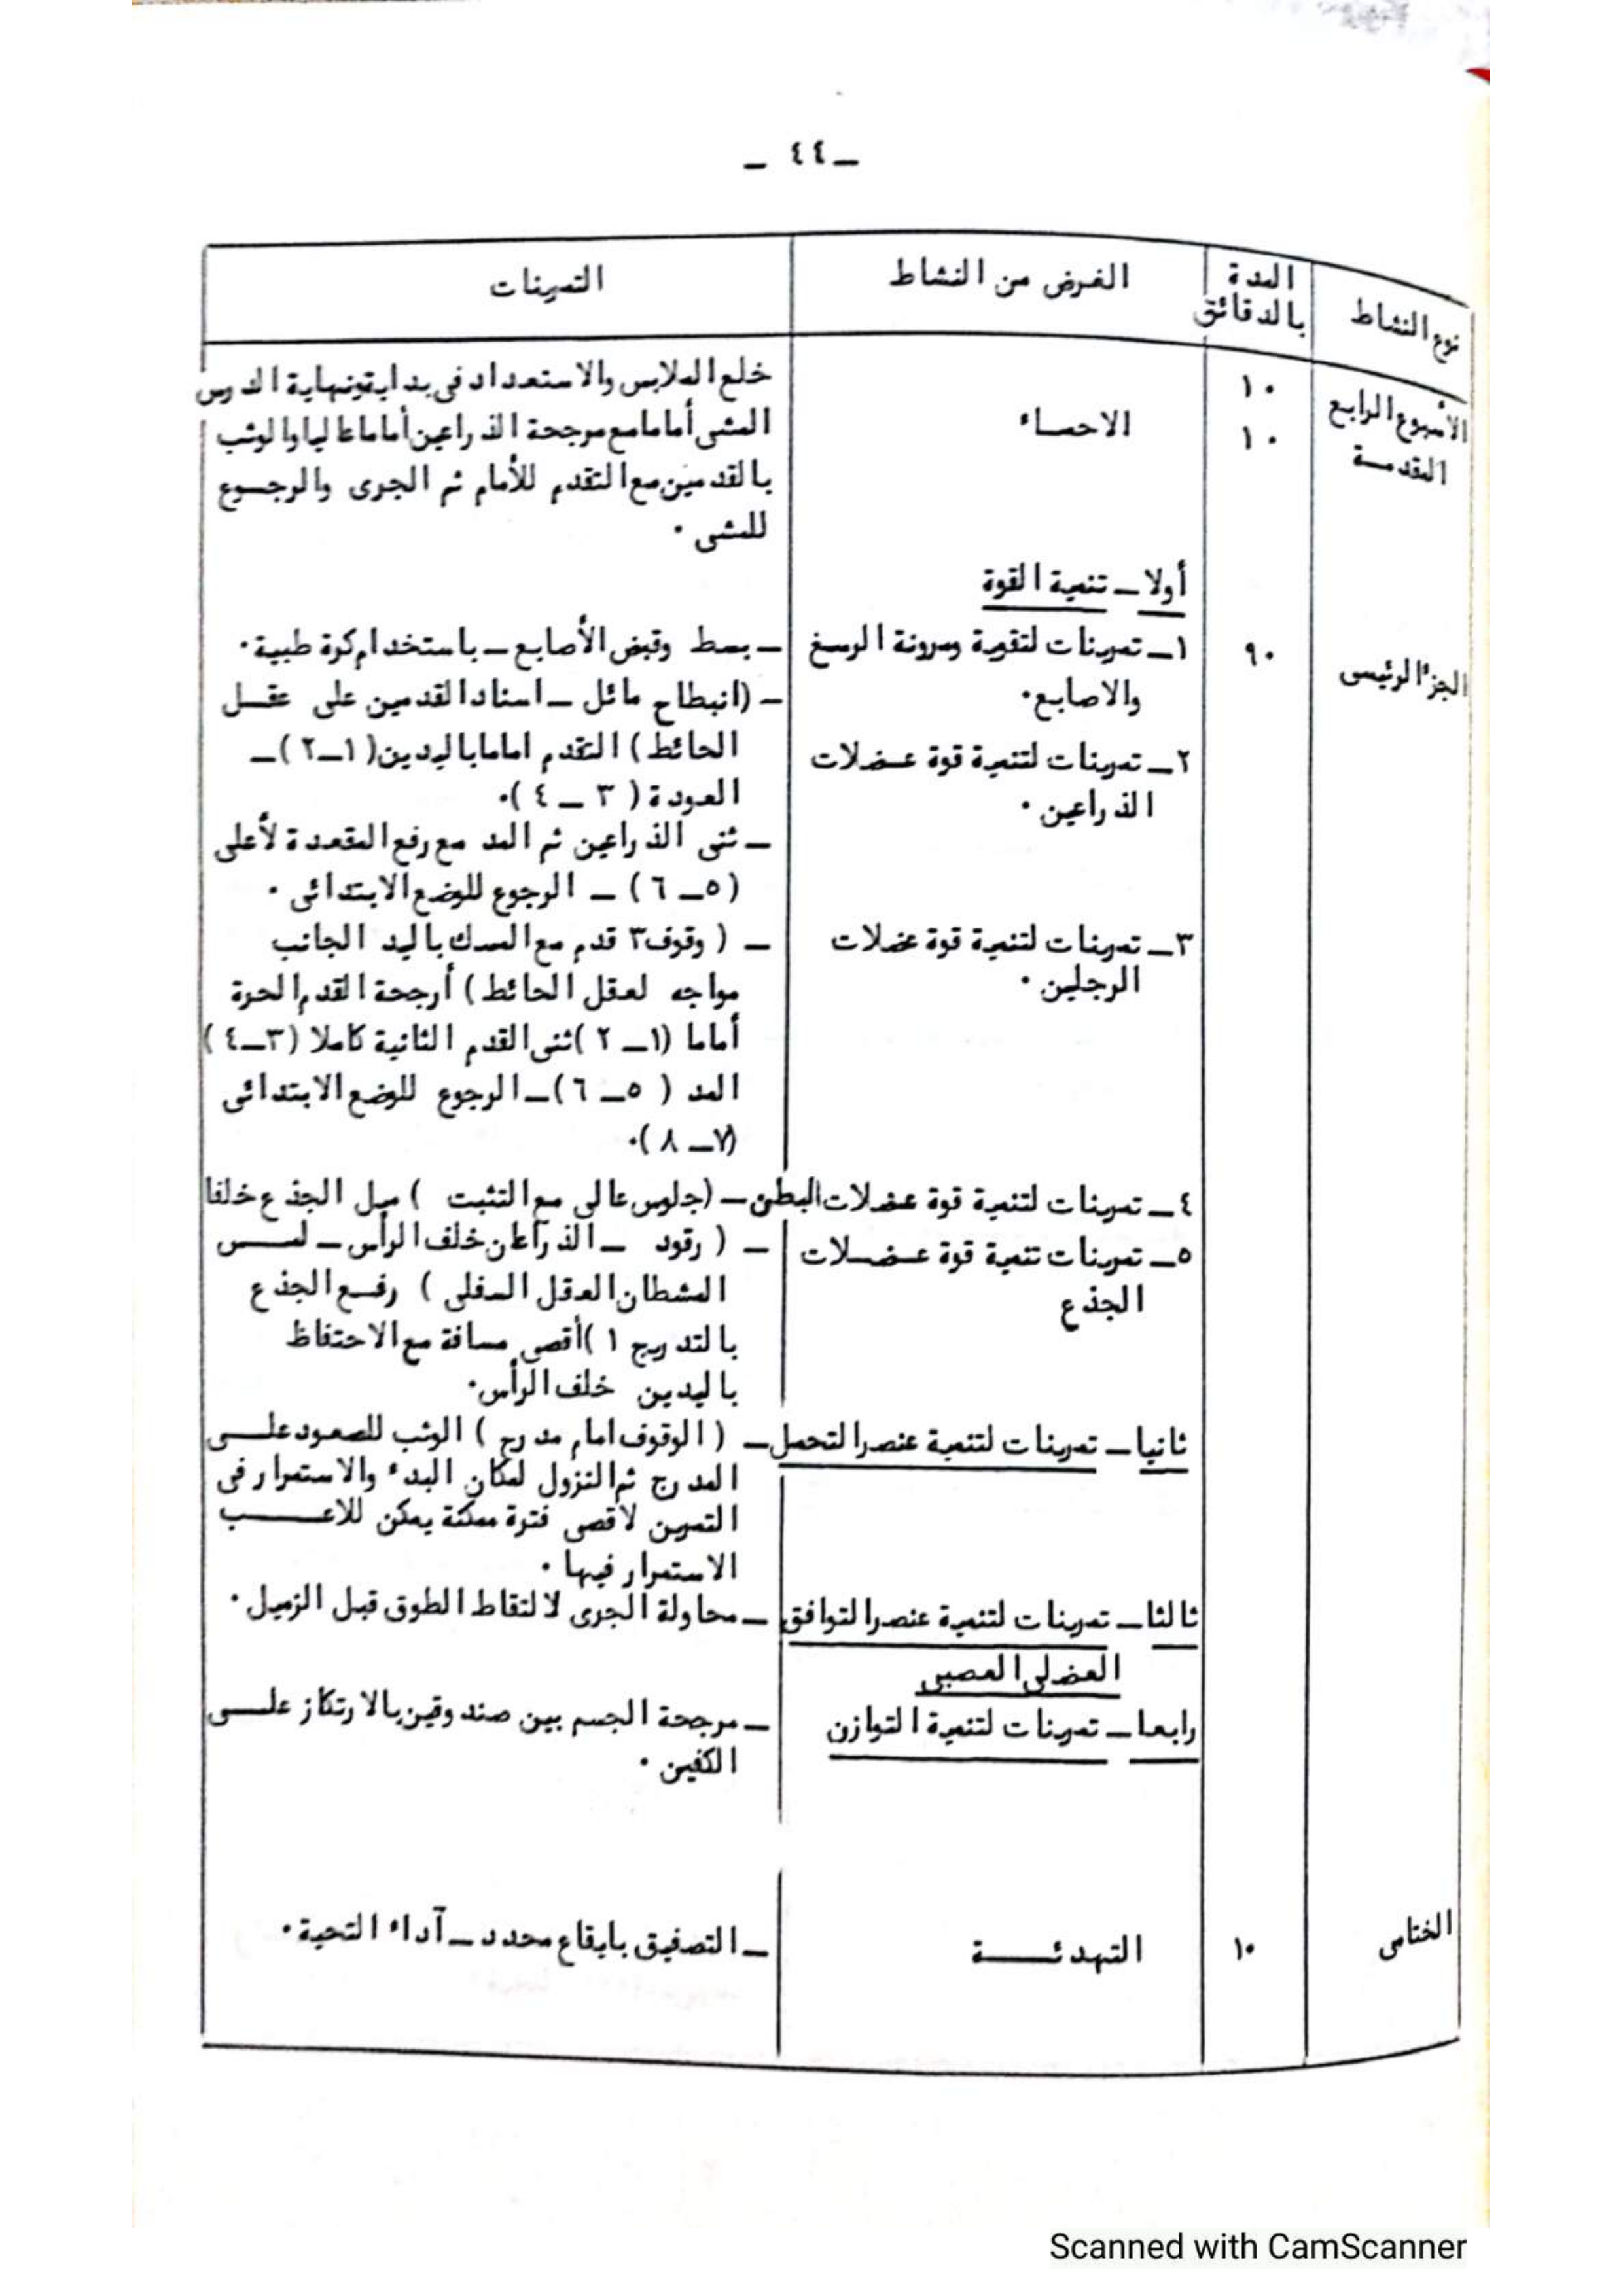 ـ ٤٤ ـ
نوع النشاط
المدة
بالدقائق
الغرض من النشاط
التمرينات
الأسبوع الرابع
المقدمة
١٠
١٠
الاحماء
خلع الملابس والاستعداد فى بداية ونهاية الدرس
المشى أماما مع مرجحة الذراعين أماما عاليا والوثب
بالقدمين مع التقدم للأمام ثم الجرى والرجوع
للمشى ٠
الجزء الرئيسى
٩٠
أولا ـ تنمية القوة
١ـ تمرينات لتقوية ومرونة الرسغ
والاصابع٠
ـ بسط وقبض الأصابع ـ باستخدام كرة طبية٠
ـ (انبطاح مائل ـ اسناد القدمين على عقل
الحائط) التقدم اماما باليدين (١ـ٢) ـ
العودة (٣ ـ ٤)٠
٢ـ تمرينات لتنمية قوة عضلات
الذراعين ٠
ـ ثنى الذراعين ثم المد مع رفع المقعدة لأعلى
(٥ـ ٦) ـ الرجوع للوضع الابتدائى ٠
٣ـ تمرينات لتنمية قوة عضلات
الرجلين ٠
ـ ( وقوف٣ قدم مع المسك باليد الجانب
مواجه لعقل الحائط) أرجحة القدم الحرة
أماما (١ـ ٢) ثنى القدم الثانية كاملا (٣ـ٤)
المد ( ٥ـ ٦) ـ الرجوع للوضع الابتدائى
(٧ـ ٨)٠
٤ـ تمرينات لتنمية قوة عضلات البطن ـ (جلوس عالى مع التثبت ) ميل الجذع خلفا
٥ـ تمرينات تنمية قوة عضلات
الجذع
ـ ( رقود ـ الذراعان خلف الرأس ـ لمس
المشطان العقل السفلى ) رفع الجذع
بالتدريج ١) أقصى مسافة مع الاحتفاظ
باليدين خلف الرأس٠
ثانيا ـ تمرينات لتنمية عنصر التحمل ـ ( الوقوف امام مدرج ) الوثب للصعود على
المدرج ثم النزول لمكان البدء والاستمرار فى
التمرين لاقصى فترة ممكنة يمكن للاعب
الاستمرار فيها ٠
ثالثا ـ تمرينات لتنمية عنصر التوافق ـ محاولة الجرى لالتقاط الطوق قبل الزميل ٠
العضلى العصبى
رابعا ـ تمرينات لتنمية التوازن
ـ مرجحة الجسم بين صندوقين بالارتكاز على
الكفين ٠
الختامى
١٠
التهدئة
ـ التصفيق بايقاع محدد ـ آداء التحية ٠
Scanned with CamScanner